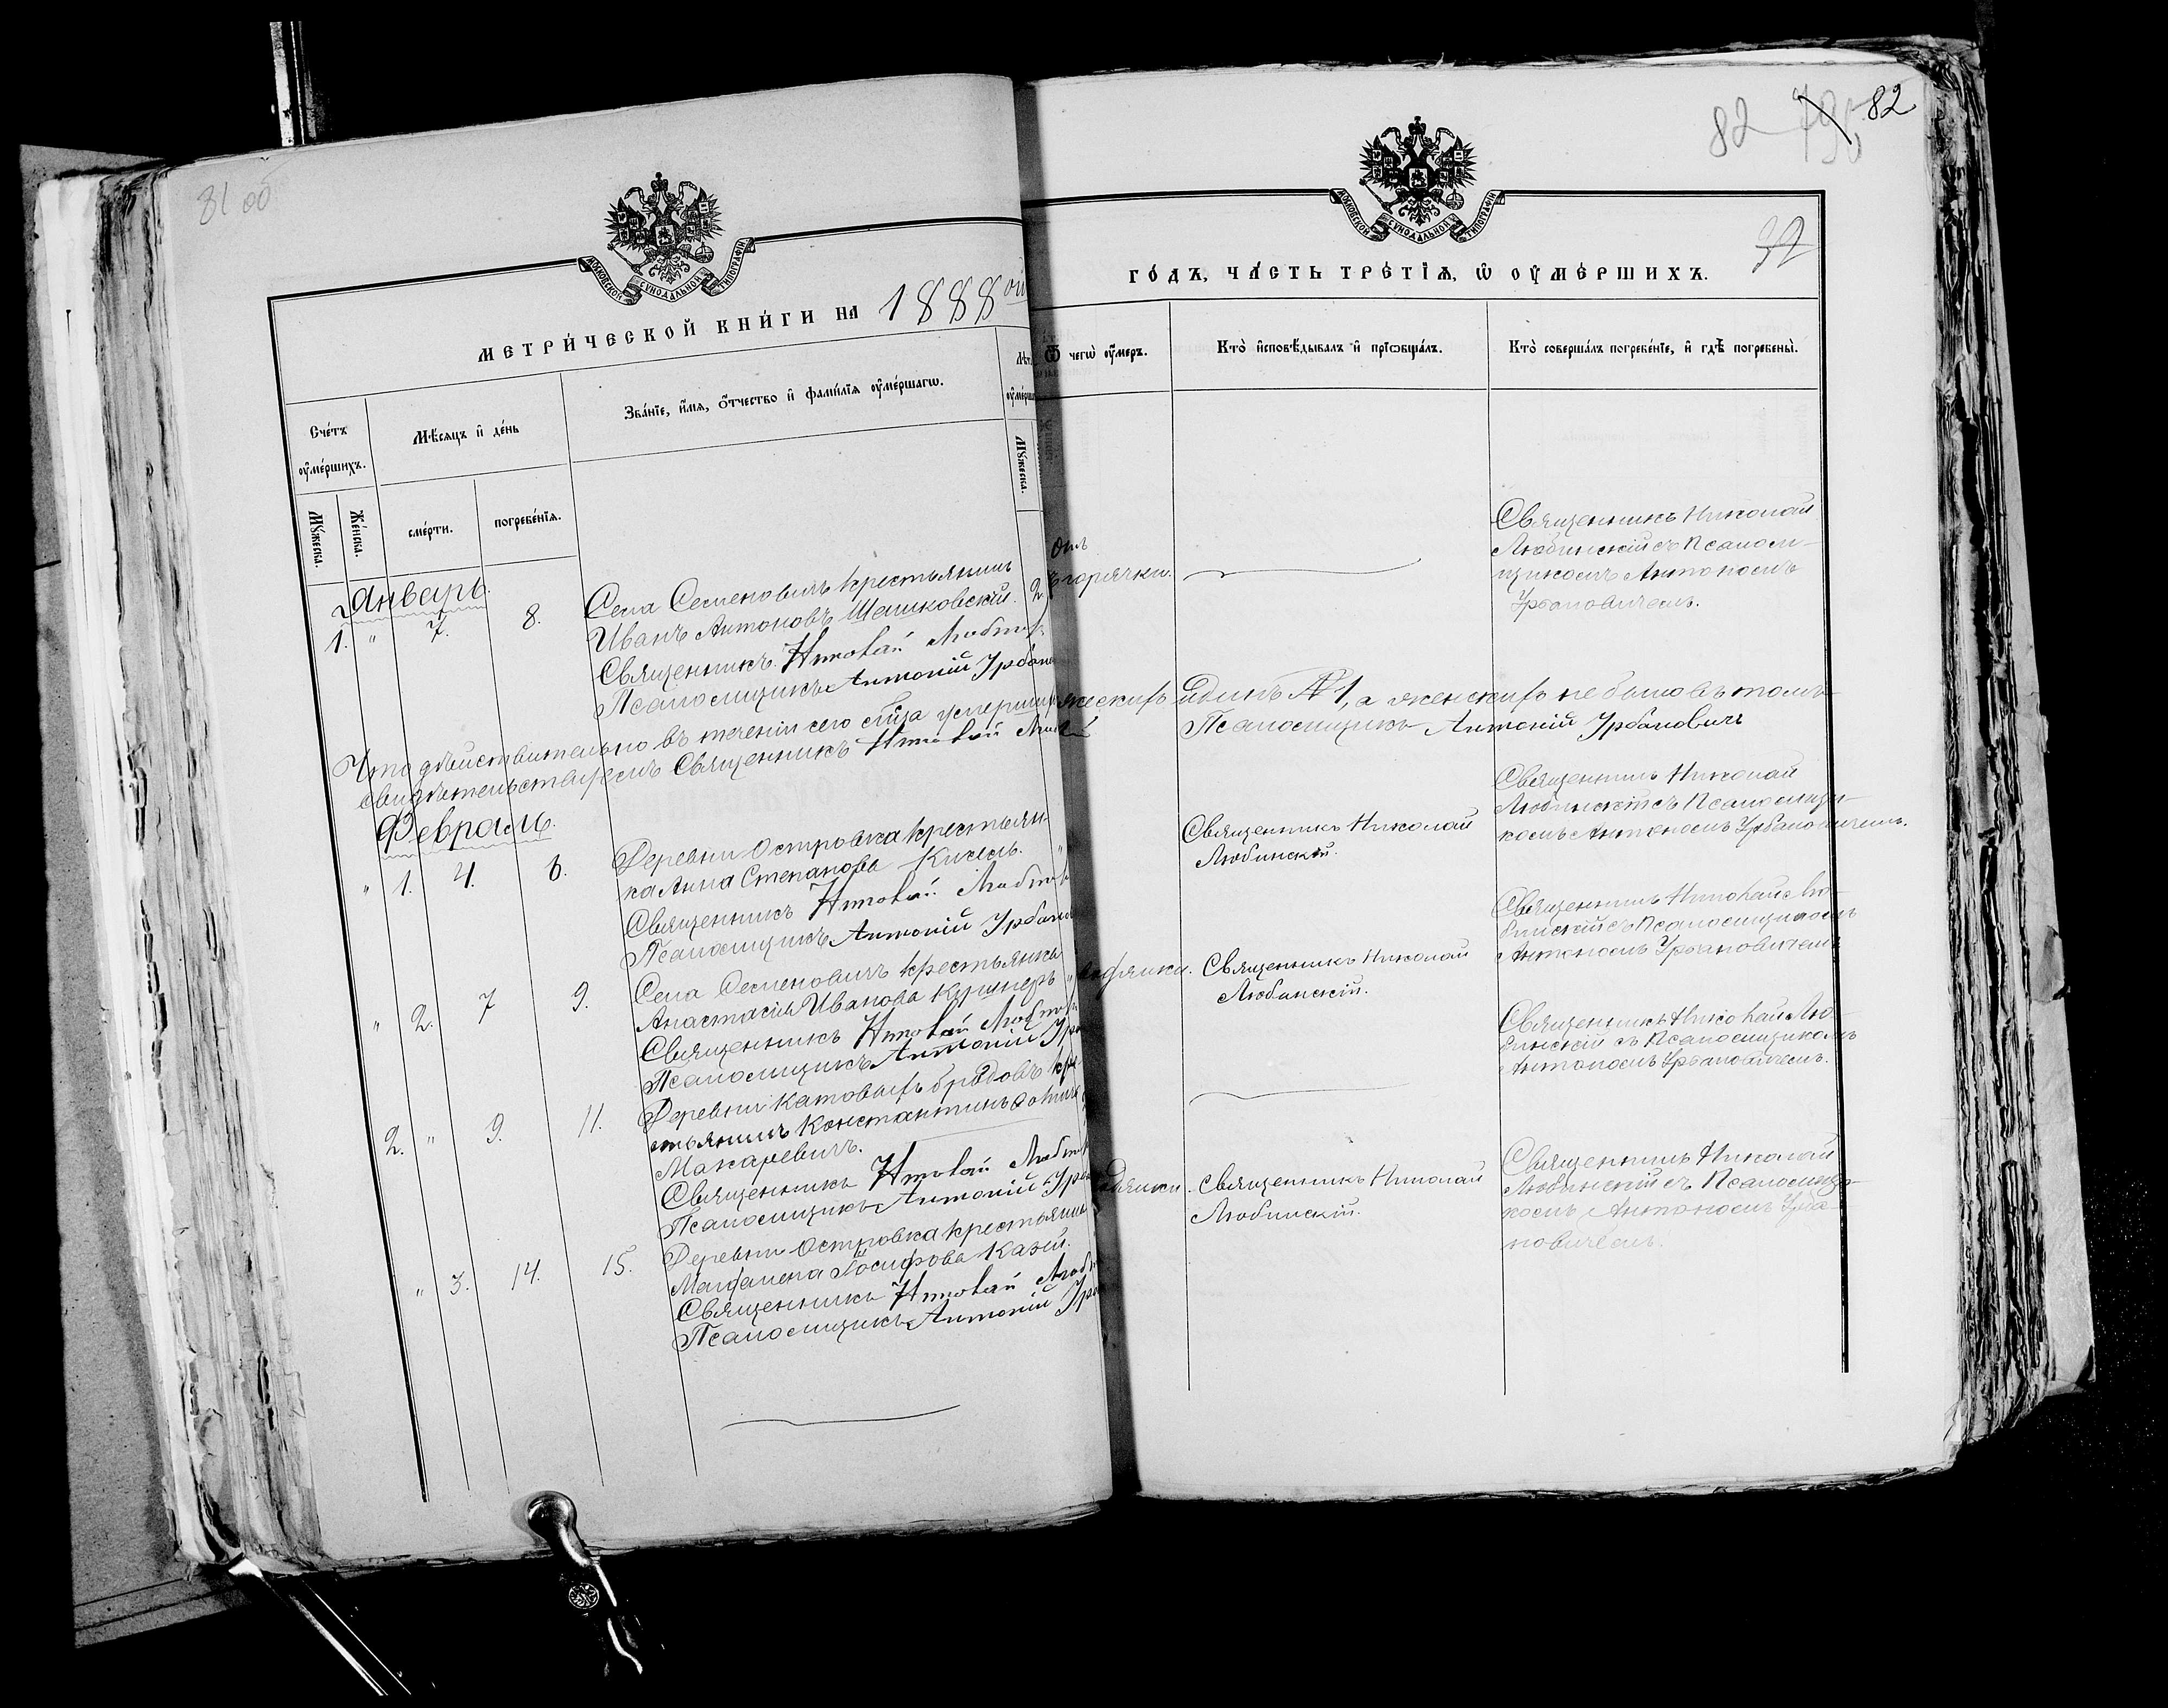 81 об
МОСКОВСКОЙ СѴНОДАЛЬНОЙ ТИПОГРАФІИ
МЕТРИ́ЧЕСКОЙ КНИ́ГИ НА 1888ой
Сче́тъ ѹ҆ме́ршихъ.
Мѣ́сяцъ и҆ де́нь
Зва́нїе, и҆́мѧ, ѻ҆́тчество и҆ фами́лїѧ ѹ҆ме́ршагѡ.
Мꙋ́жеска.
Же́нска.
сме́рти.
погребе́нїѧ.
Мꙋ́жеска.
Январь.
1. " 7. 8.
Села Семеновичъ крестьянинъ
Иванъ Антоновъ Шешковскій. 2
Священникъ Николай
Псаломщикъ Антоній
Что дѣйствительно въ теченіи сего
свидѣтельствуемъ Священникъ Николай
Февраль.
" 1. 4. 6.
Деревни Островка крестьян-
ка Анна Степанова Кисель.
Священникъ Николай
Псаломщикъ Антоній
" 2. 7 9.
Села Семеновичъ крестьянка
Анастасія Ивановa Кушнеръ
Священникъ Николай
Псаломщикъ Антоній
2. " 9. 11.
Деревни Катовыхъ бродовъ кре-
стьянинъ Константинъ
Макаревичъ.
Священникъ Николай
Псаломщикъ Антоній
" 3. 14. 15.
Деревни Островка крестьянка
Магдалена Іосифова Казей.
Священникъ Николай
Псаломщикъ Антоній
82 82
МОСКОВСКОЙ СѴНОДАЛЬНОЙ ТИПОГРАФІИ
ГО́ДЪ, ЧА́СТЬ ТРЕ́ТЇѦ, Ѡ҆ ОУ҆МЕ́РШИХЪ.
Ѿ чегѡ̀ ѹ҆́меръ.
Кто̀ и҆сповѣ́дывалъ и҆ прїѡбща́лъ.
Кто̀ соверша́лъ погребе́нїе, и҆ гдѣ̀ погребены̀.
Отъ
горячки.
Священникъ Николай
Любинскій съ Псалом-
щикомъ Антономъ
Урбановичемъ.
единъ № 1, а женскихъ не было въ томъ
Псаломщикъ Антоній Урбановичъ
Священникъ Николай
Любинскій.
Священникъ Николай
Любинскій съ Псаломщи-
комъ Антономъ Урбановичемъ.
Священникъ Николай
Любинскій.
Священникъ Николай Лю-
бинскій съ Псаломщикомъ
Антономъ Урбановичемъ
Священникъ Николай Лю-
бинскій съ Псаломщикомъ
Антономъ Урбановичемъ.
Священникъ Николай
Любинскій.
Священникъ Николай
Любинскій съ Псаломщи-
комъ Антономъ Урба-
новичемъ.